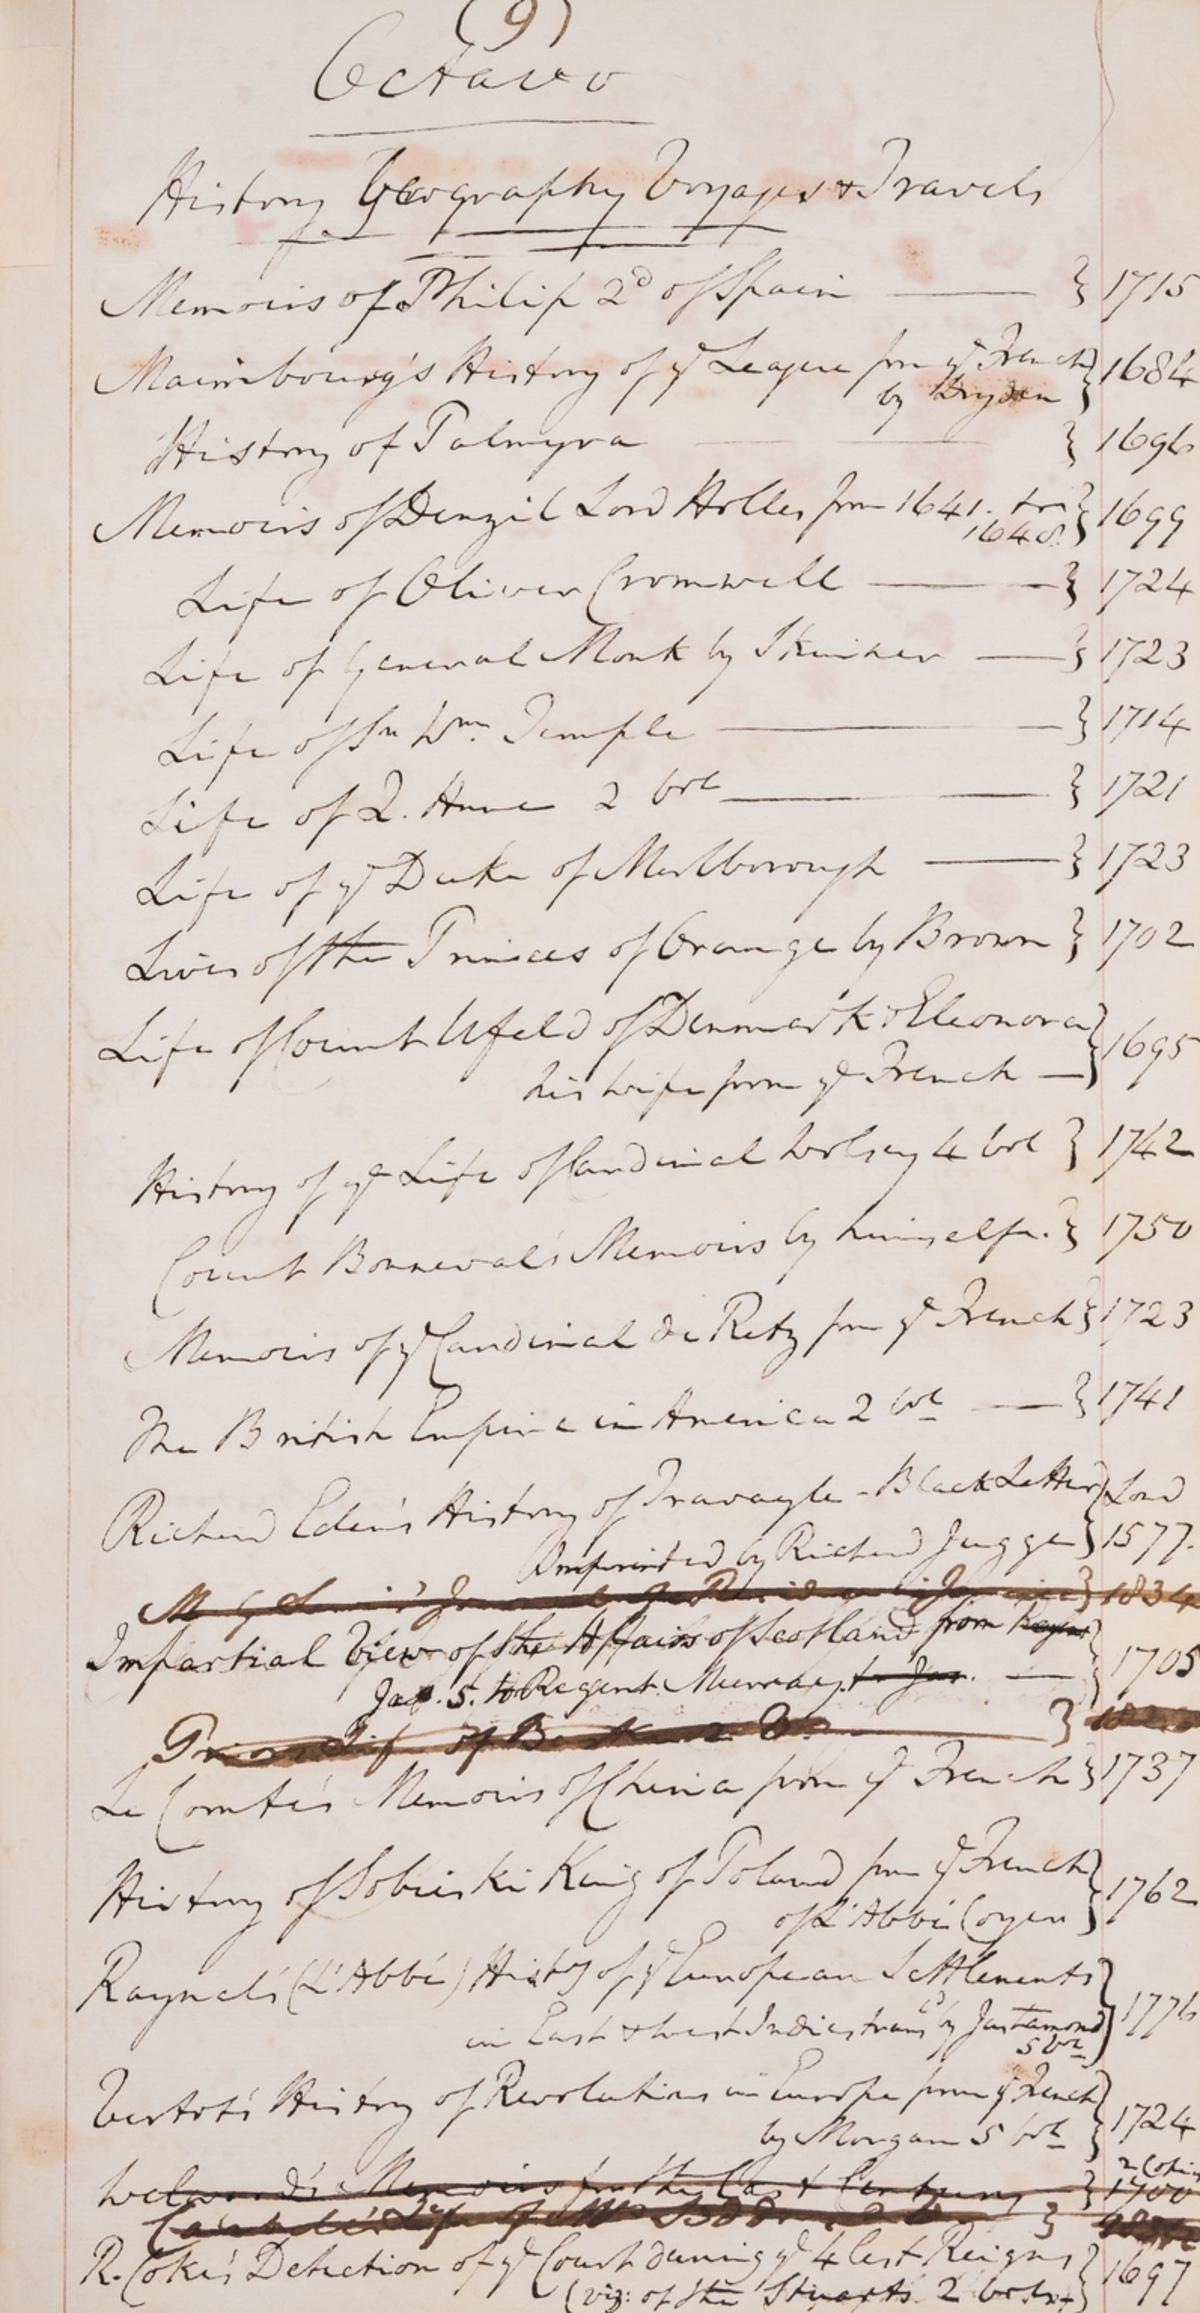 (9)
Octavo
History Geography Voyages & Travels
Memoirs of Philip 2d of Spain } 1715
Maimbourg's History of ye League from ye French
by Dryden } 1684
History of Palmyra } 1696
Memoirs of Denzil Lord Holles from 1641. to
1648. } 1699
Life of Oliver Cromwell } 1724
Life of General Monk by Skinner } 1723
Life of Sr Wm. Temple } 1714
Life of Q. Anne 2 vol } 1721
Life of ye Duke of Marlborough } 1723
Lives of the Princes of Orange by Brown } 1702
Life of Count Ufeld of Denmark & Eleonora
his wife from ye French } 1695
History of ye Life of Cardinal Wolsey 4 vol } 1742
Count Bonneval's Memoirs by himselfe. } 1750
Memoirs of ye Cardinal de Retz from ye French } 1723
The British Empire in America 2 vol } 1741
Richard Eden's History of Travayle - Black Letter } Lond
Imprinted by Richard Jugge } 1577.
M G Lewis' Journal of a Residence in Jamaica } 1834
Impartial View of the Affairs of Scotland from
Jas. 5. to Regent Murray. to Jas. } 1705
Prior's Life of Burke 2 V. }
Le Comte's Memoirs of China from ye French } 1737
History of Sobieski King of Poland from ye French
of L'Abbé Coyer } 1762
Raynal's (L'Abbé) History of ye European Settlements
in East & West Indies transd by Justamond } 1776
5 vol
Vertot's History of Revolutions in Europe from ye French
by Morgan 5 vol } 1724
2 Copies
Welwood's Memoirs for the Last Century } 1700
Life of }
R. Coke's Detection of ye Court during ye 4 last Reigns
(viz: of the Stuarts 2 vols. } 1697